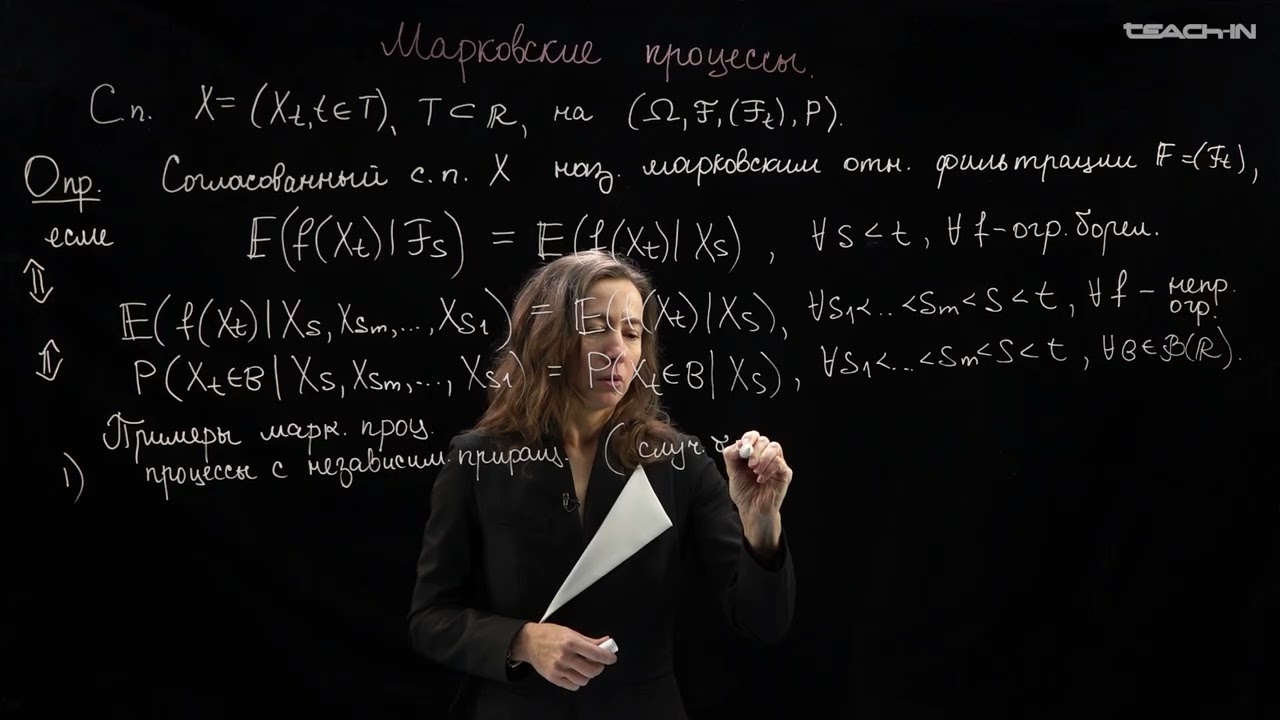 TEACH-IN
Марковские процессы.
С.п. X = (X_t, t ∈ T), T ⊂ ℝ, на (Ω, ℱ, (ℱ_t), P).
Опр. Согласованный с.п. X наз. марковским отн. фильтрации 𝔽 = (ℱ_t),
если 𝔼(f(X_t)|ℱ_s) = 𝔼(f(X_t)|X_s), ∀s<t, ∀f-огр. борел.
⇕ 𝔼(f(X_t)|X_s, X_sm,..., X_s1) = 𝔼(f(X_t)|X_s), ∀s_1<...<s_m<s<t, ∀f - непр. огр.
⇕ P(X_t∈B|X_s, X_sm,..., X_s1) = P(X_t∈B|X_s), ∀s_1<...<s_m<s<t, ∀B∈ℬ(ℝ).
Примеры марк. проц.
1) процессы с независим. приращ. (случ.